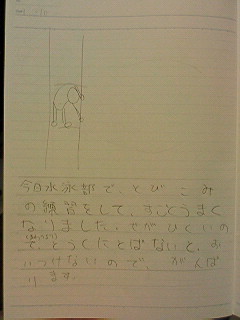 今日水泳部で、とびこみ
の練習をして、すごくうまく
なりました。でもひくいの
で、とうくにとばないと、お
いつけないので、がんば
ります。